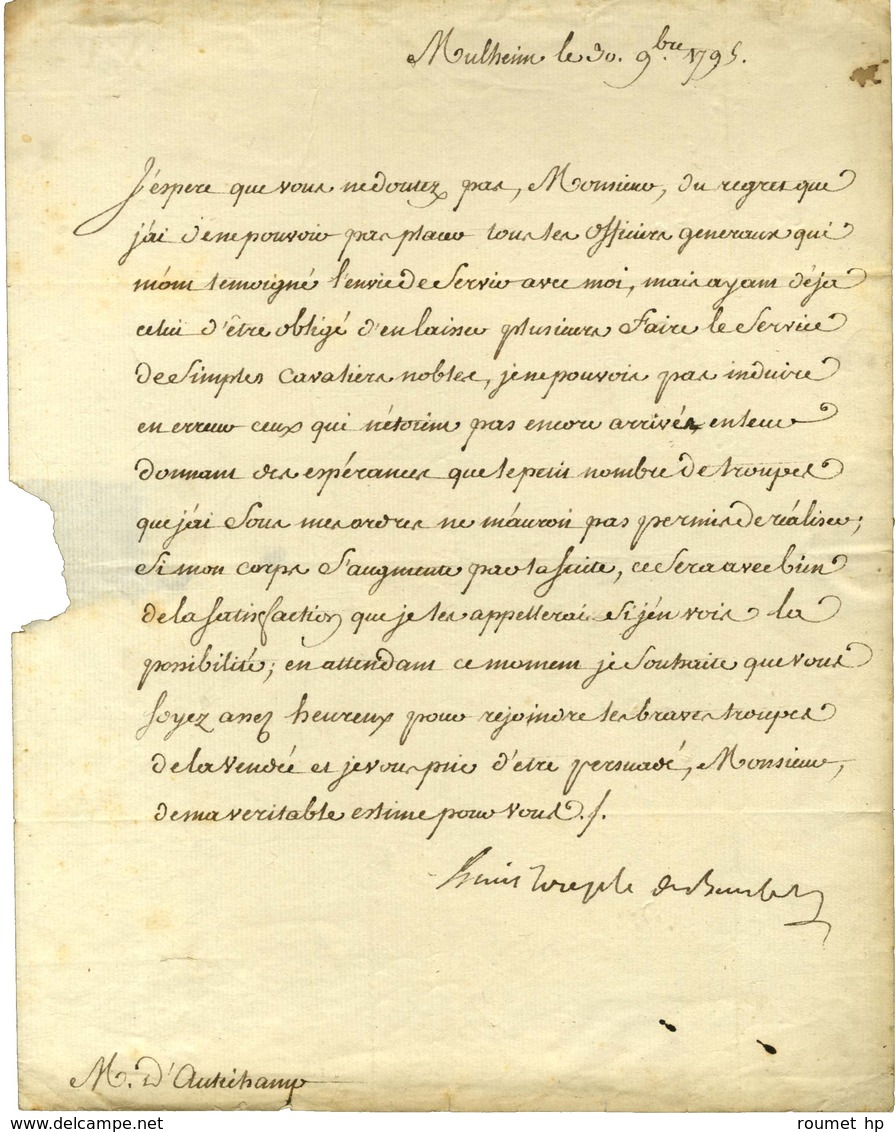 Mulheim le 30. 9bre 1795.
J'espere que vous ne doutez pas, Monsieur, du regret que
j'ai de ne pouvoir pas placer tous les officiers generaux qui
m'ont temoigné l'envie de Servir avec moi, mais ayant déja
celui d'être obligé d'en laisser plusieurs Faire le Service
de Simples Cavaliers nobles, je ne pouvois pas induire
en erreur ceux qui n'étoient pas encore arrivés, en leur
donnant des espérances que le petit nombre de troupes
que j'ai Sous mes ordres ne m'auroit pas permis de réaliser;
Si mon corps S'augmente par la Suite, ce Sera avec bien
de la Satisfaction que je les appellerai Si j'en vois la
possibilité; en attendant ce moment je Souhaite que vous
Soyez assez heureux pour rejoindre les braves troupes
de la Vendée et je vous prie d'être persuadé, Monsieur,
de ma veritable estime pour vous ./.
Louis Joseph de Bourbon
M. d'Autichamp
roumet hp